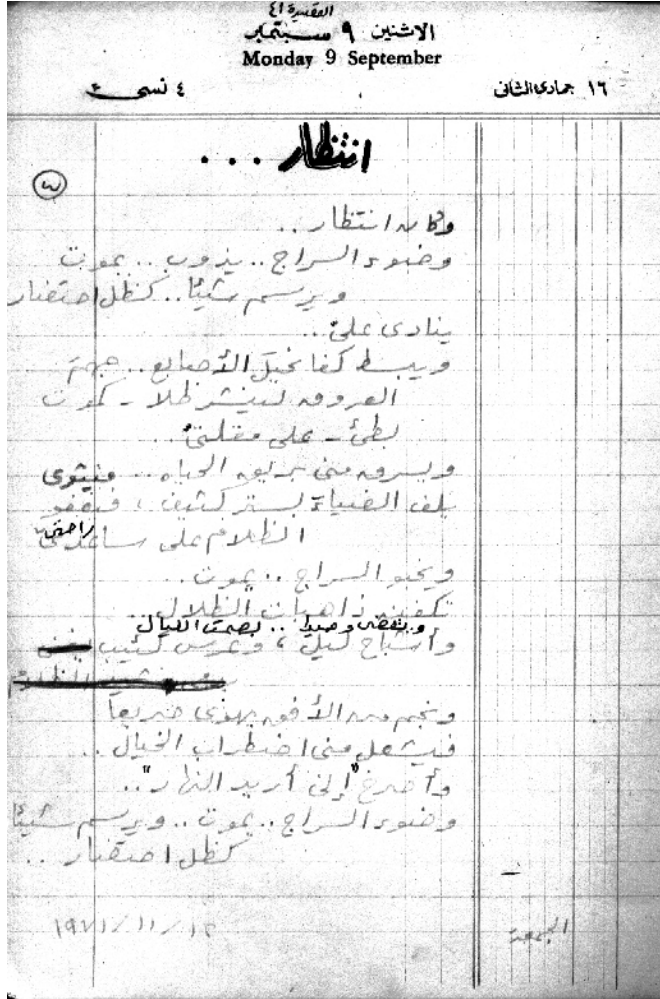 القصيدة ٤١
الاثنين ٩ سبتمبر
Monday 9 September
١٦ جمادى الثانى ٤ نسى
انتظار ...
وكان انتظار ..
وضوء السراج .. يذوب .. يموت
ويرسم شيئا .. كظل احتضار
ينادى علىّ ..
ويبسط كفا نحيل الأصابع .. جهم
العروق لينشر ظلا - كموت
بطئ - على مقلتىّ ..
ويسرق منى بريق الحياه ..
يلف الضياء بستر كثيف ، فيغفو
الظلام على راحتىّ
ويخبو السراج .. يموت ..
تكفنه ذاهبات الظلال ..
وأشباح ليل ، وعرس كئيب
وينقضى وحيدا .. بصمت الليال
ونجم من الأفق يهوى صريعا
فيشعل منى اضطراب الخيال ..
وأصرخ "إنى أريد النهار" ..
وضوء السراج .. يموت .. ويرسم شيئا
كظل احتضار ..
الجمعة ١٢ / ١١ / ١٩٧١